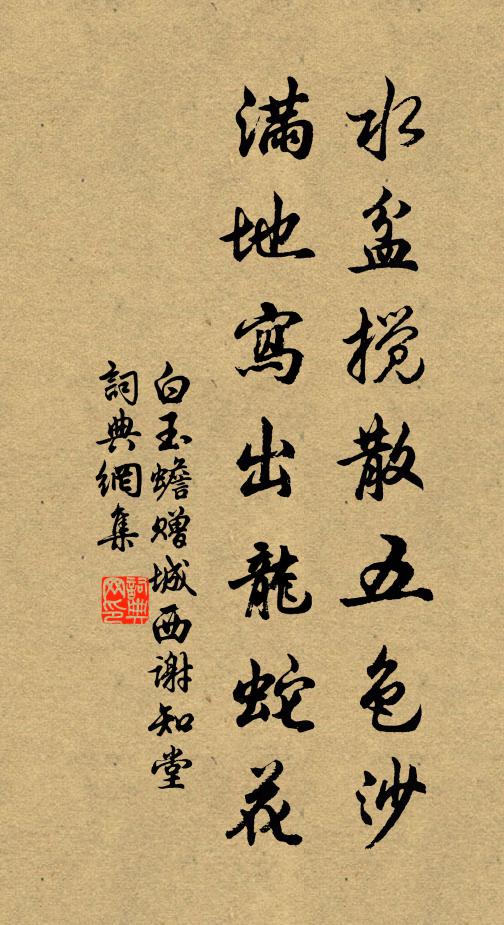 水盆搅散五色沙
滿地寫出龍蛇花
白玉蟾赠城西谢知堂
詞典網集
詞典网印